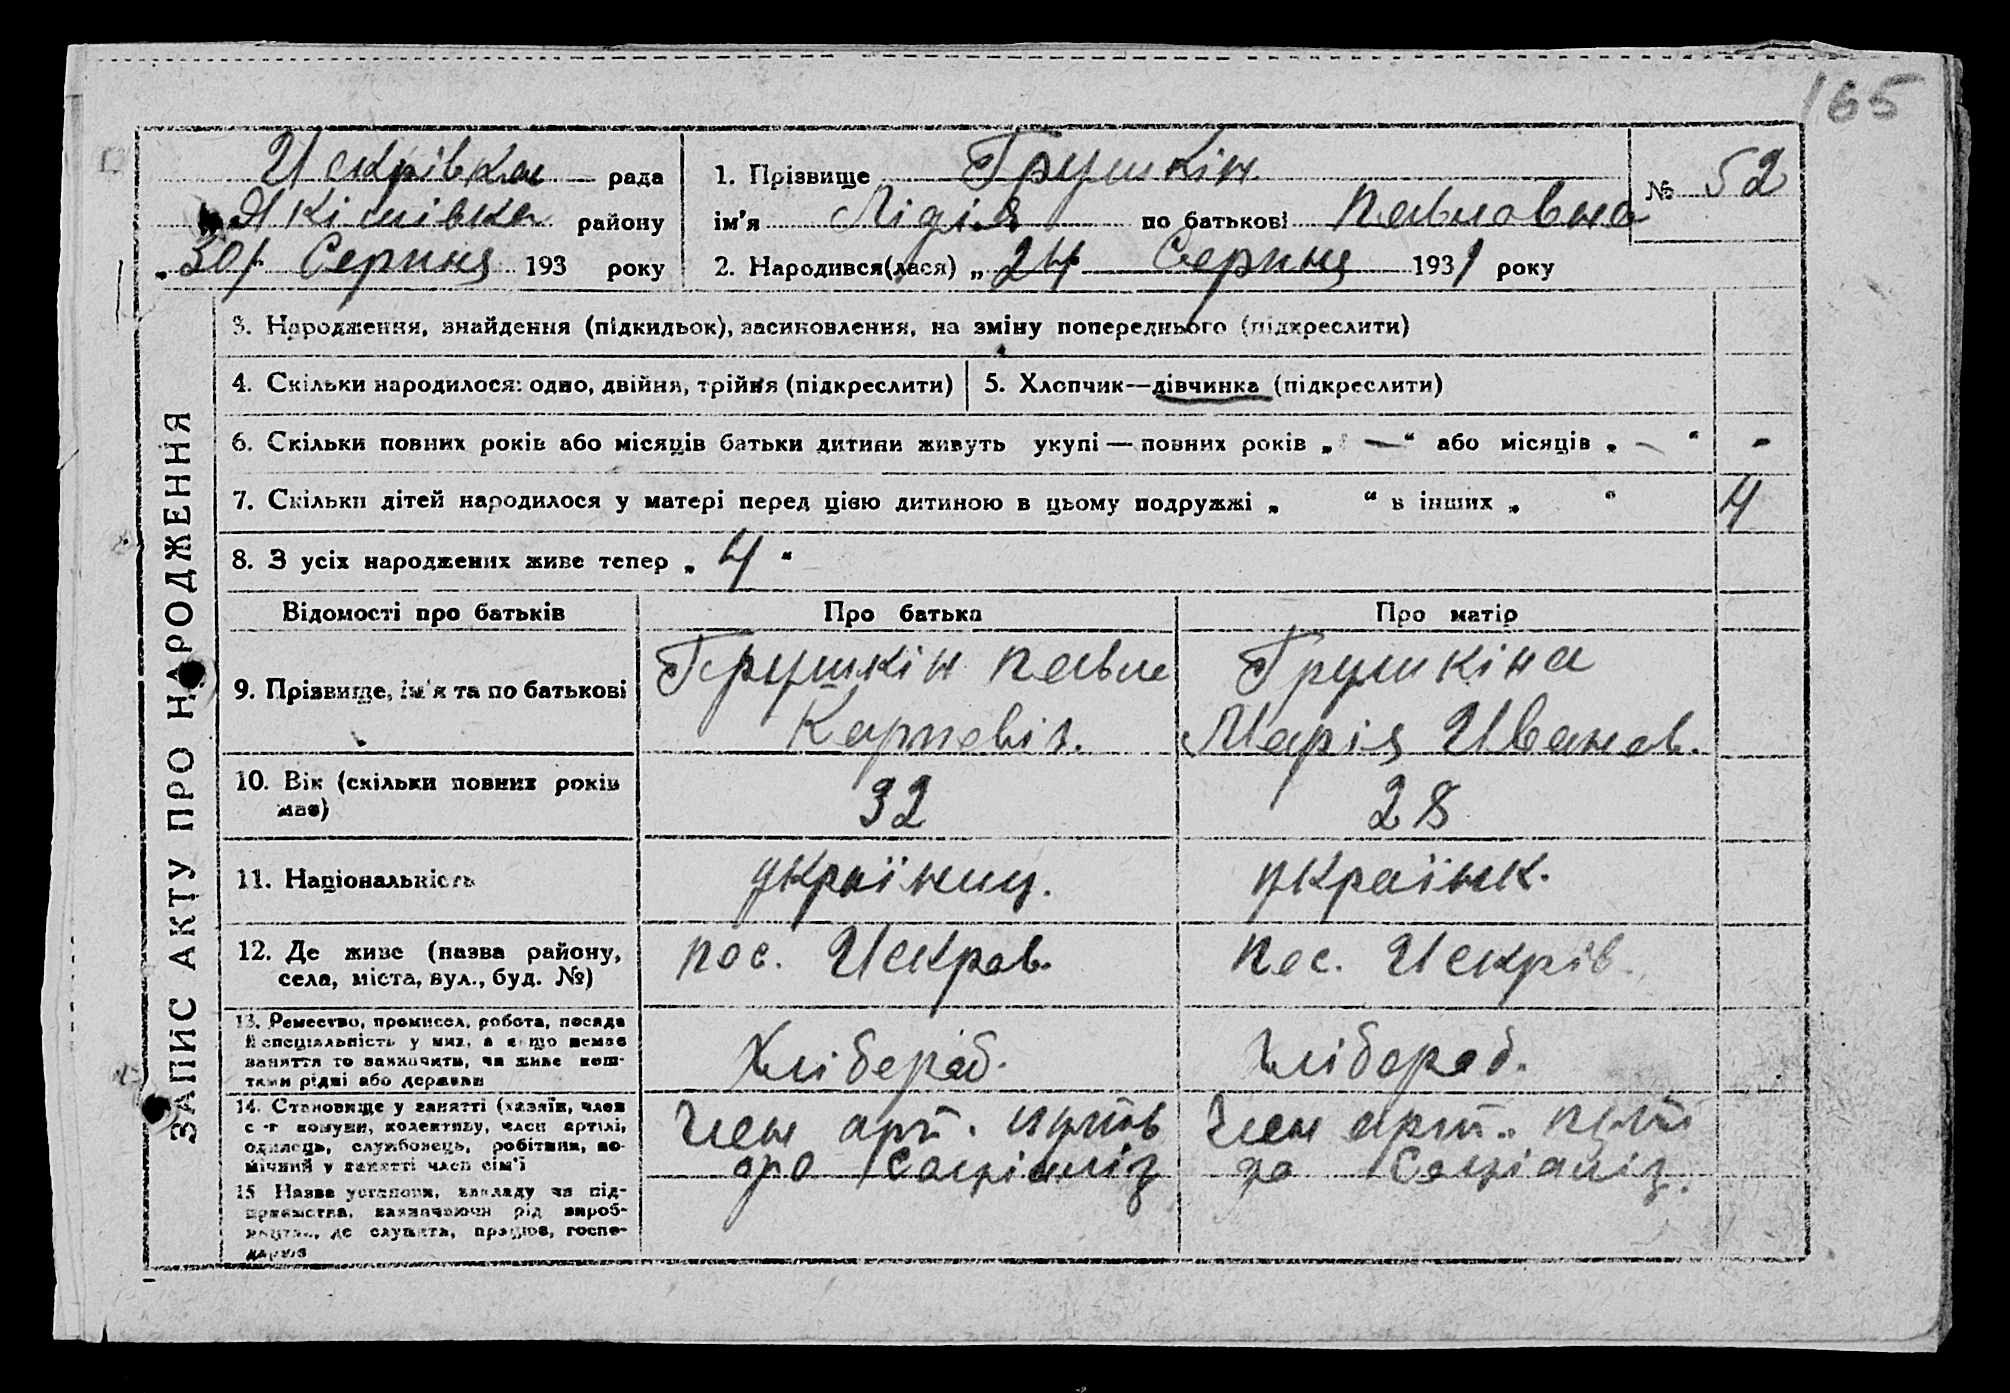 165
Искрівка рада
Якімівка району
„30/ Серпня 193 року
1. Прізвище Грушкін
ім'я Лідія по батькові Павловна
2. Народився(лася) „24 Серпня 1931 року
№ 52
ЗАПИС АКТУ ПРО НАРОДЖЕННЯ
3. Народження, знайдення (підкидьок), засиновлення, на зміну попереднього (підкреслити)
4. Скільки народилося: одно, двійня, трійня (підкреслити)
5. Хлопчик—дівчинка (підкреслити)
6. Скільки повних років або місяців батьки дитини живуть укупі — повних років „ — “ або місяців „ — “ -
7. Скільки дітей народилося у матері перед цією дитиною в цьому подружжі „ “ в інших „ “ 4
8. З усіх народжених живе тепер „ 4 “
Відомості про батьків
Про батька
Про матір
9. Прізвище, ім'я та по батькові
Грушкін Павло
Карпевіч.
Грушкіна
Марія Иванов.
10. Вік (скільки повних років
має)
32
28
11. Національність
українец.
українк.
12. Де живе (назва району,
села, міста, вул., буд. №)
пос. Искров.
пос. Искрів.
13. Ремество, промисел, робота, посада
й спеціяльність у них, а якщо немає
заняття то зазначити, чи живе кош-
тами рідні або держави
Хлібораб.
Хлібораб.
14. Становище у занятті (хазяїн, член
с.-г комуни, колективу, член артілі,
одинець, службовець, робітник, по-
мічний у занятті член сім'ї
Член арт. путь
до Соціаліз
Член арт. путь
до Соціаліз.
15 Назва установи, закладу чи під-
приємства, зазначаючи рід вироб-
ництва, де служить, працює, госпо-
дарює